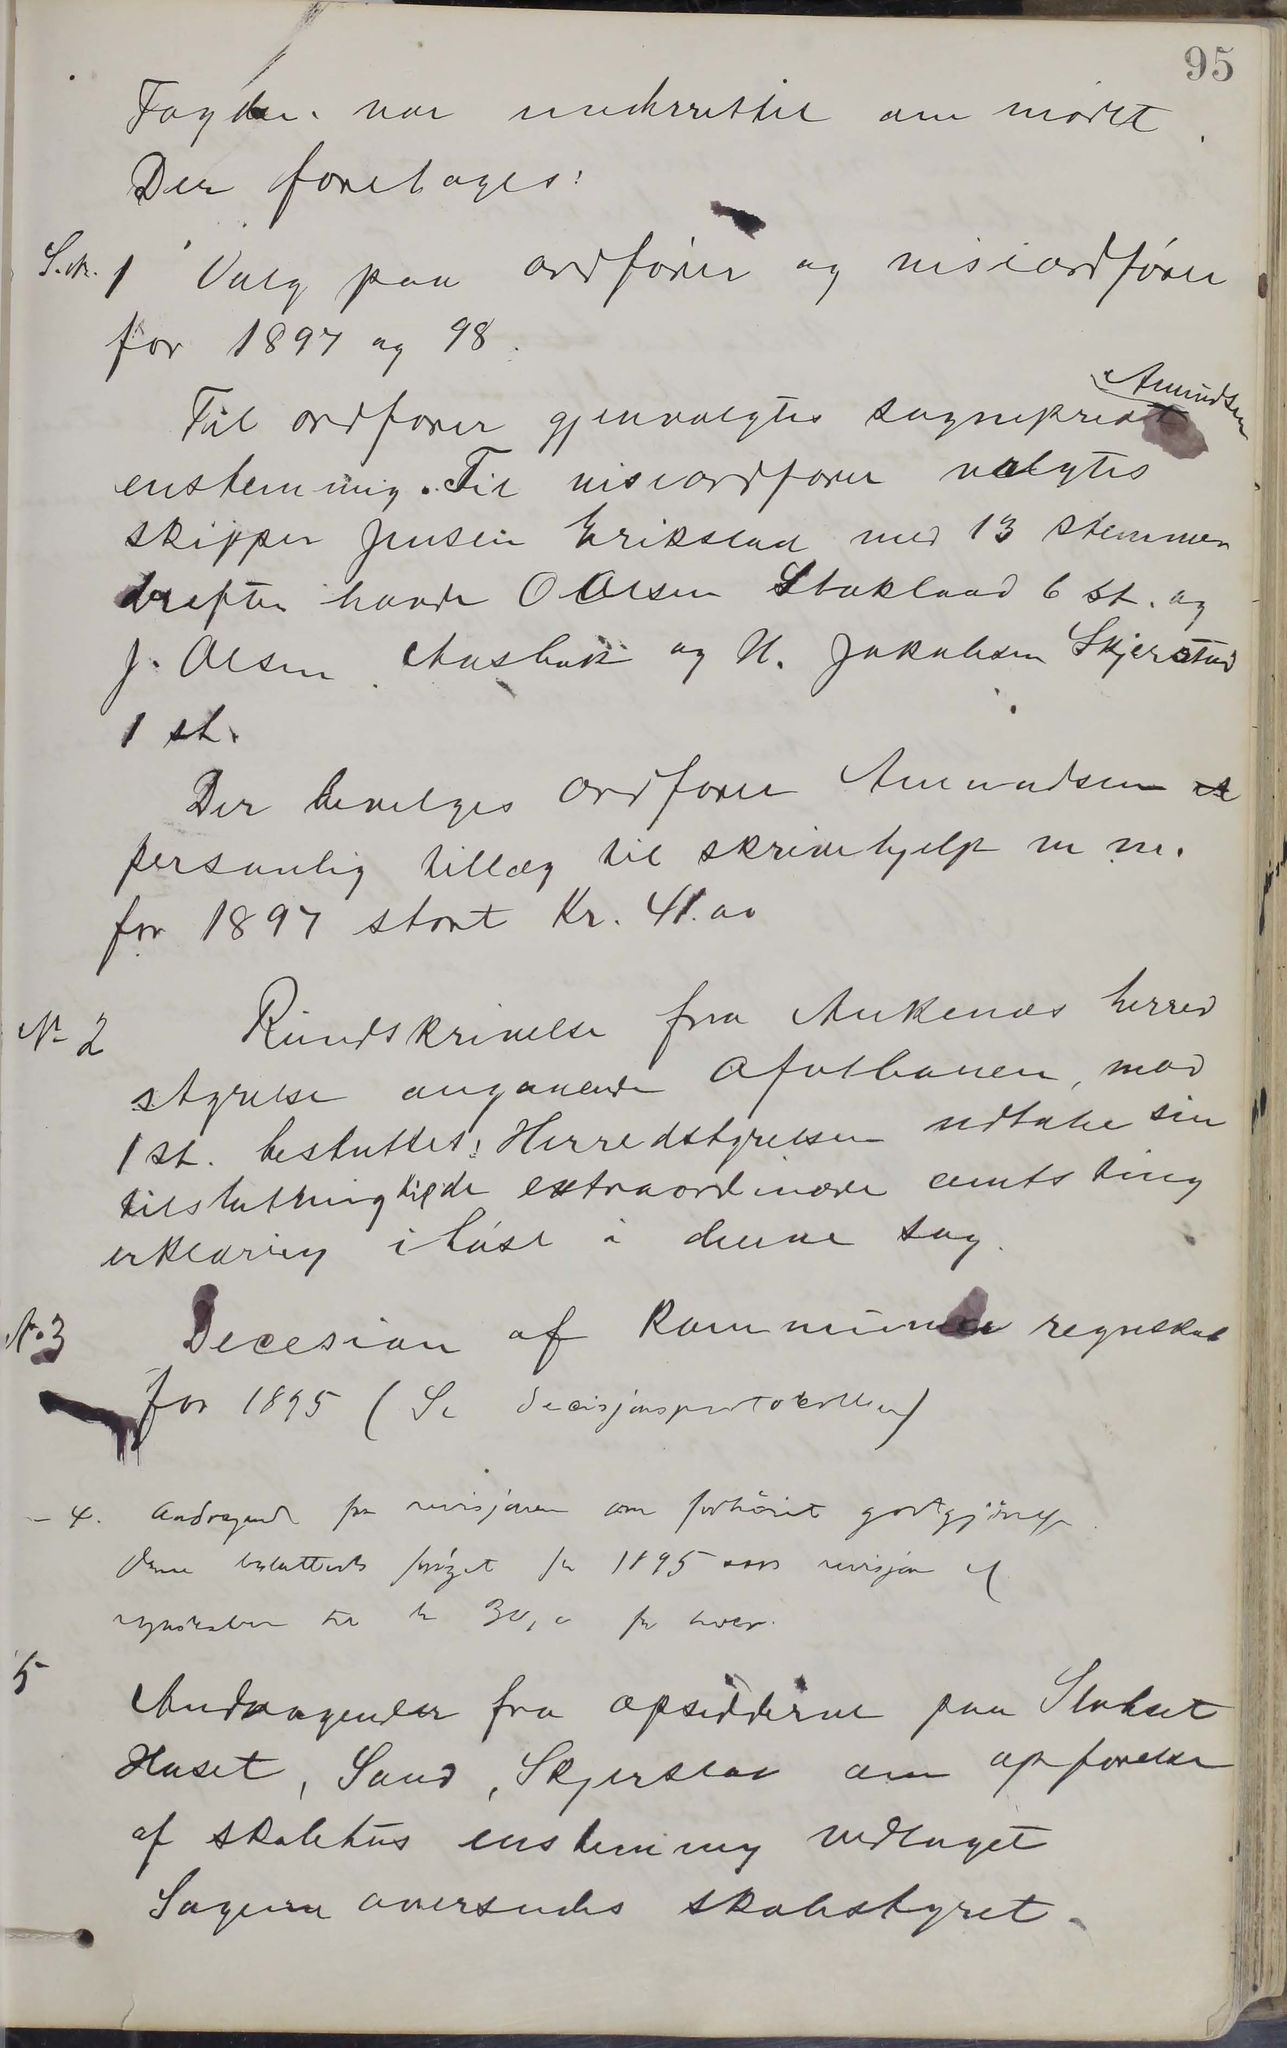 95
Fogden. var underrettet om mødet.
Der foretages:
S. nr. 1 Valg paa ordfører og viseordfører
for 1897 og 98.
Til ordfører gjenvalgtes sogneprest Amundsen
enstemmig. Til viseordfører valgtes
skipper Jensen Erikstad med 13 stemmer
derefter havde O Olsen Stokland 6 st. og
J. Olsen Aasbak og N. Jakobsen Skjerstad
1 st.
Der bevilges ordfører Amundsen et
personlig tillæg til skrivehjelp m m.
for 1897 stort Kr. 41.00
Nr 2 Rundskrivelse fra Ankenæs herred
styrelse angaaende Ofotbanen, mod
1 st. besluttet: Herredstyrelsen udtaler sin
tilslutning til de extraordinære amtsting
erklæring i høst i denne sag.
No 3 Decesion af Kommune regnskab
for 1895 (Se decisjonsprotokollen)
- 4. Andragende fra revisjonen om forhöiet godtgjörelse.
Denne besluttedes forøget for 1895 aars revisjon af
regnskaber til kr 30,0 for hver.
5 Andragender fra opsidderne paa Slotset
Haset, Sand, Skjerstad om opførelse
af skolehus enstemmig vedtaget
Sagerne oversendes skolestyret.